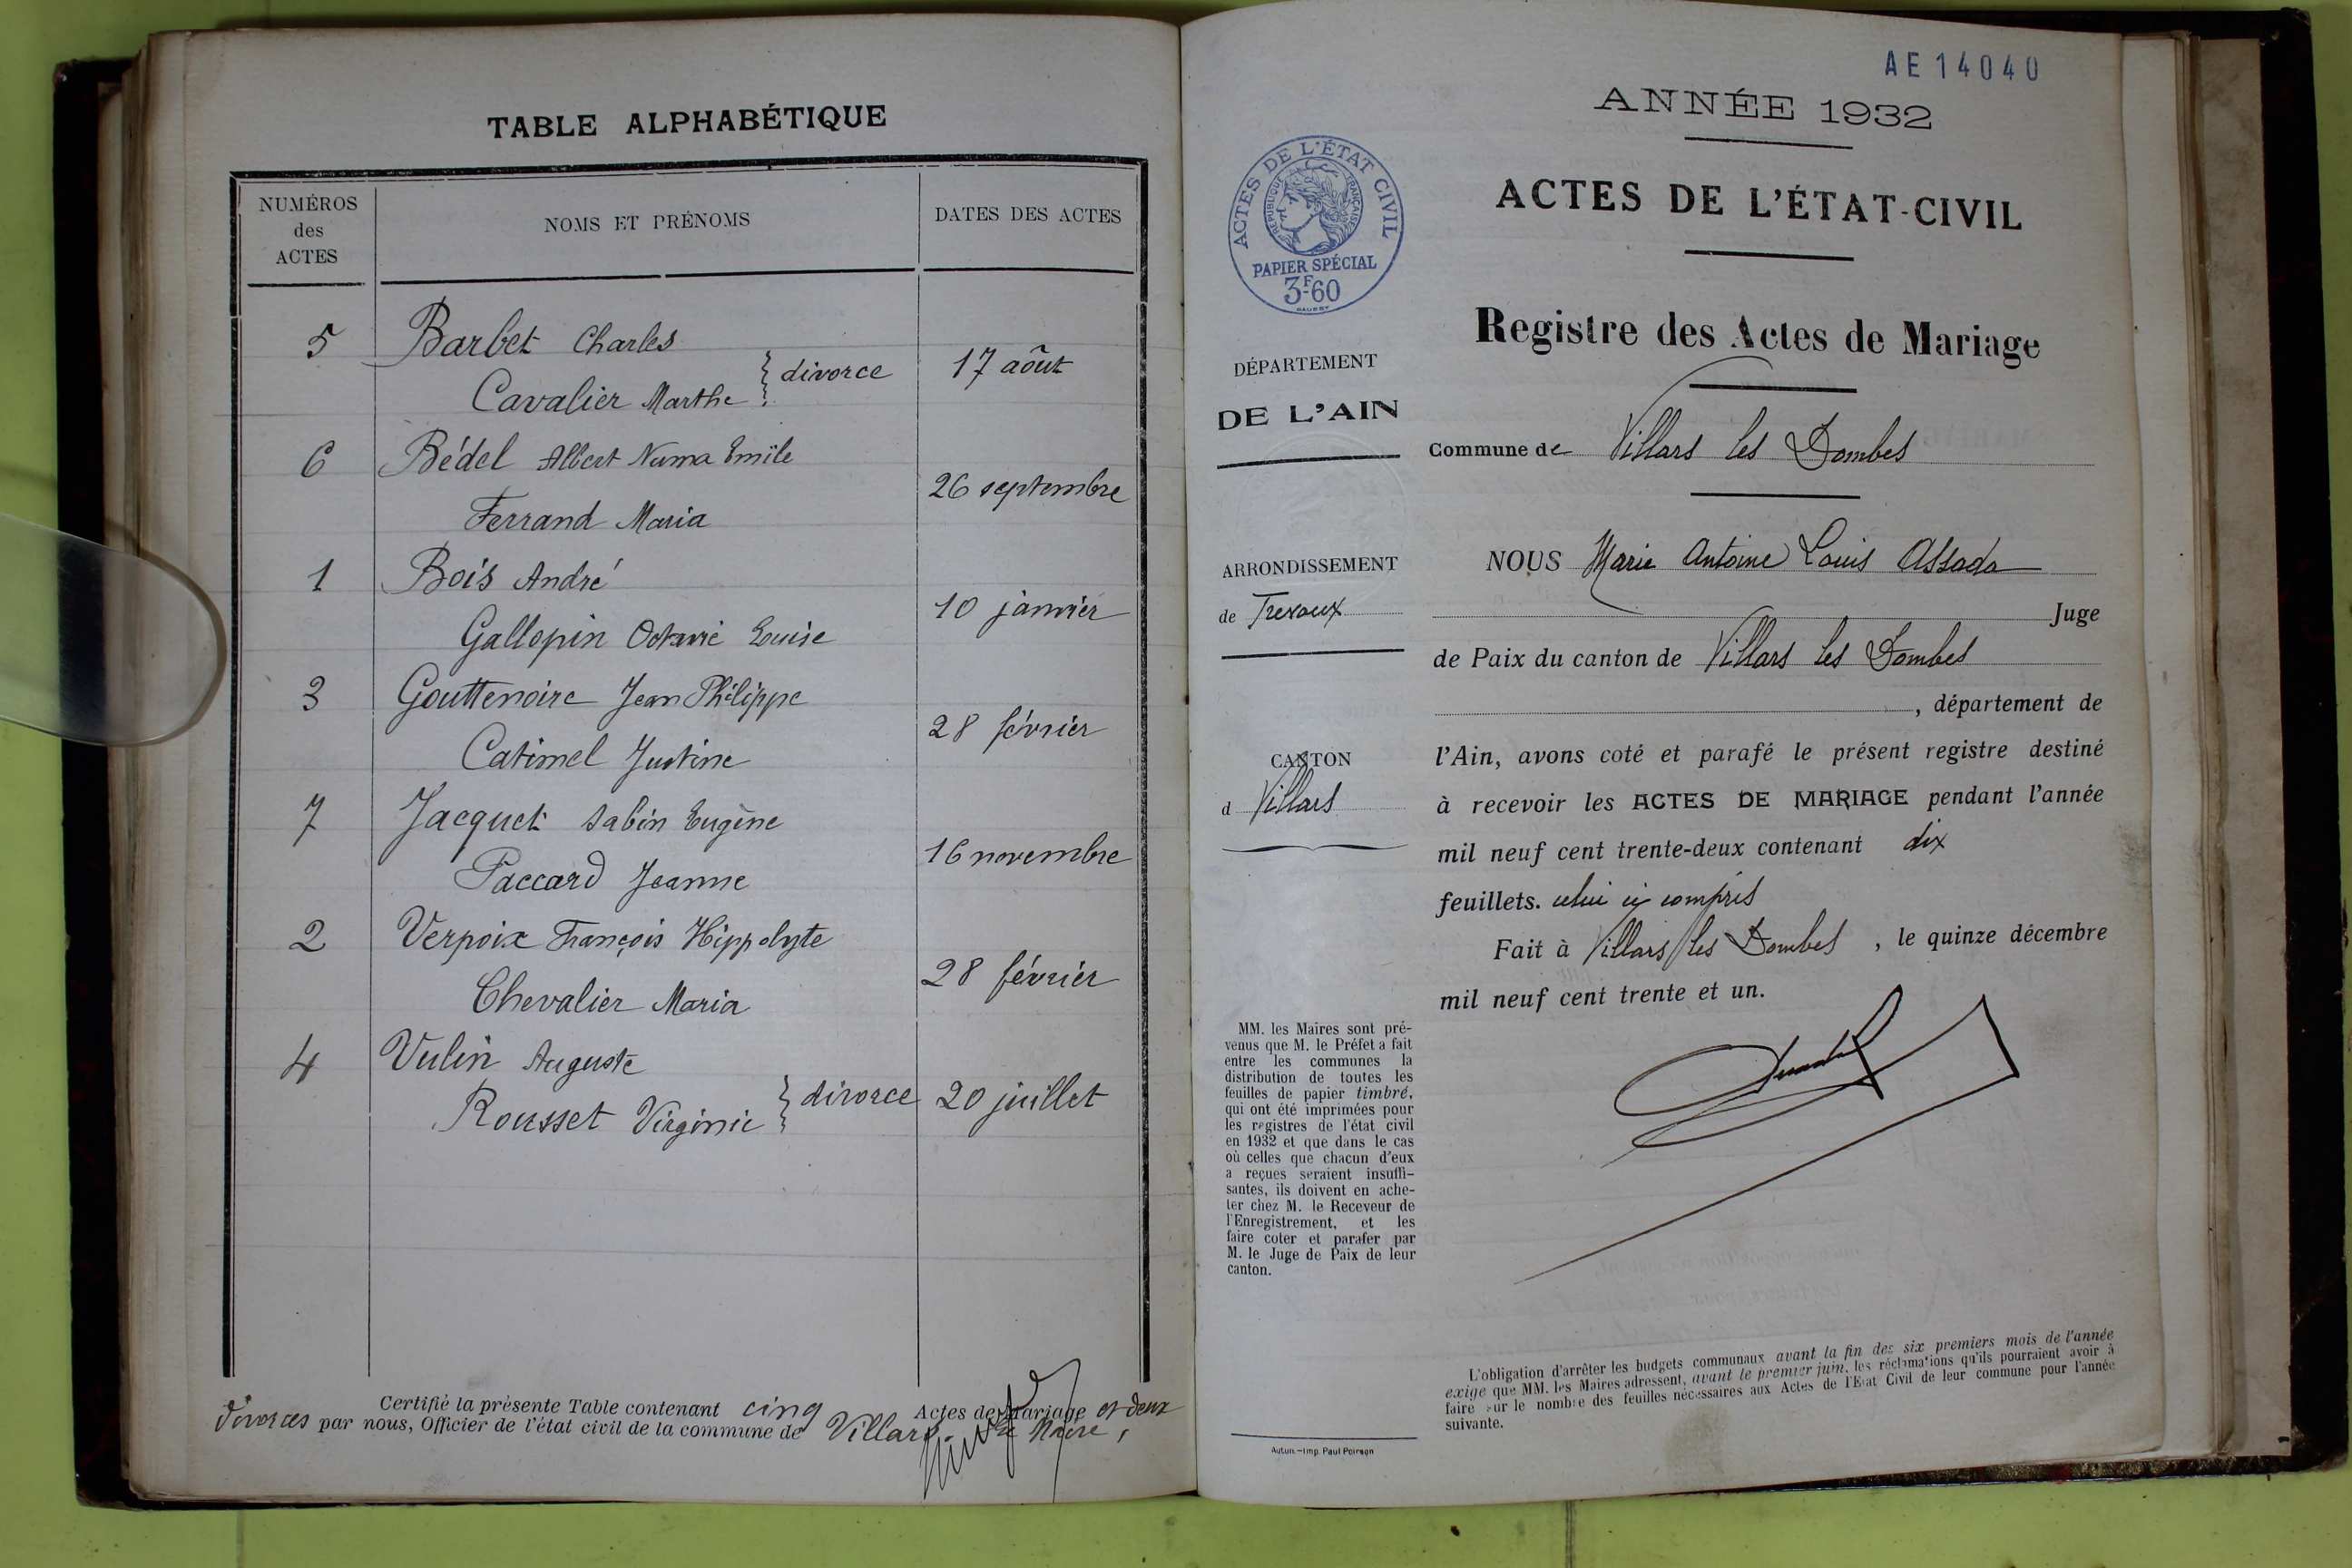 TABLE ALPHABÉTIQUE
NUMÉROS
des
ACTES
NOMS ET PRÉNOMS
DATES DES ACTES
5 Barbet Charles
Cavalier Marthe } divorce 17 août
6 Bédel Albert Numa Emile
Ferrand Maria 26 septembre
1 Bois André
Gallopin Octavie Louise 10 janvier
3 Gouttenoire Jean Philippe
Catimel Justine 28 février
7 Jacquet Sabin Eugène
Paccard Jeanne 16 novembre
2 Verpoix François Hippolyte
Chevalier Maria 28 février
4 Vulin Auguste
Rousset Virginie } divorce 20 juillet
Certifié la présente Table contenant cinq Actes de Mariage et deux
divorces par nous, Officier de l'état civil de la commune de Villars. Le Maire,
AE14040
ANNÉE 1932
ACTES DE L'ÉTAT CIVIL
RÉPUBLIQUE FRANÇAISE
PAPIER SPÉCIAL
3F.60
ACTES DE L'ÉTAT-CIVIL
Registre des Actes de Mariage
DÉPARTEMENT
DE L'AIN
Commune de Villars les Dombes
ARRONDISSEMENT
de Trévoux
CANTON
d Villars
NOUS Marie Antoine Louis Assada
Juge
de Paix du canton de Villars les Dombes
, département de
l'Ain, avons coté et parafé le présent registre destiné
à recevoir les ACTES DE MARIAGE pendant l'année
mil neuf cent trente-deux contenant dix
feuillets. celui ci compris
Fait à Villars les Dombes , le quinze décembre
mil neuf cent trente et un.
MM. les Maires sont pré-
venus que M. le Préfet a fait
entre les communes la
distribution de toutes les
feuilles de papier timbré,
qui ont été imprimées pour
les registres de l'état civil
en 1932 et que dans le cas
où celles que chacun d'eux
a reçues seraient insuffi-
santes, ils doivent en ache-
ter chez M. le Receveur de
l'Enregistrement, et les
faire coter et parafer par
M. le Juge de Paix de leur
canton.
L'obligation d'arrêter les budgets communaux avant la fin des six premiers mois de l'année
exige que MM. les Maires adressent, avant le premier juin, les réclamations qu'ils pourraient avoir à
faire sur le nombre des feuilles nécessaires aux Actes de l'Etat Civil de leur commune pour l'année
suivante.
Autun.—Imp. Paul Poirson